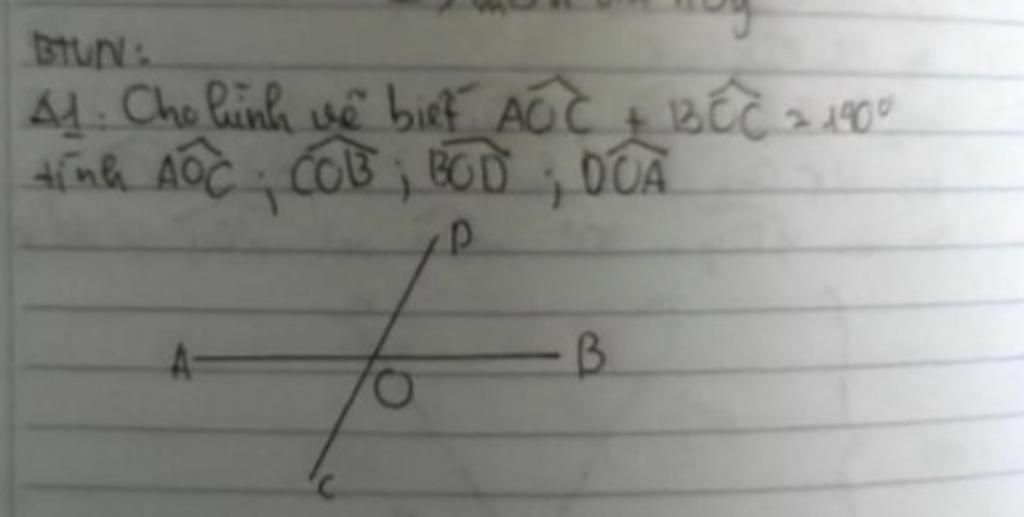 BTVN:
A1. Cho hình vẽ biết AOC + BOC = 190°
tính AOC ; COB ; BOD ; DOA
D
A
B
O
C